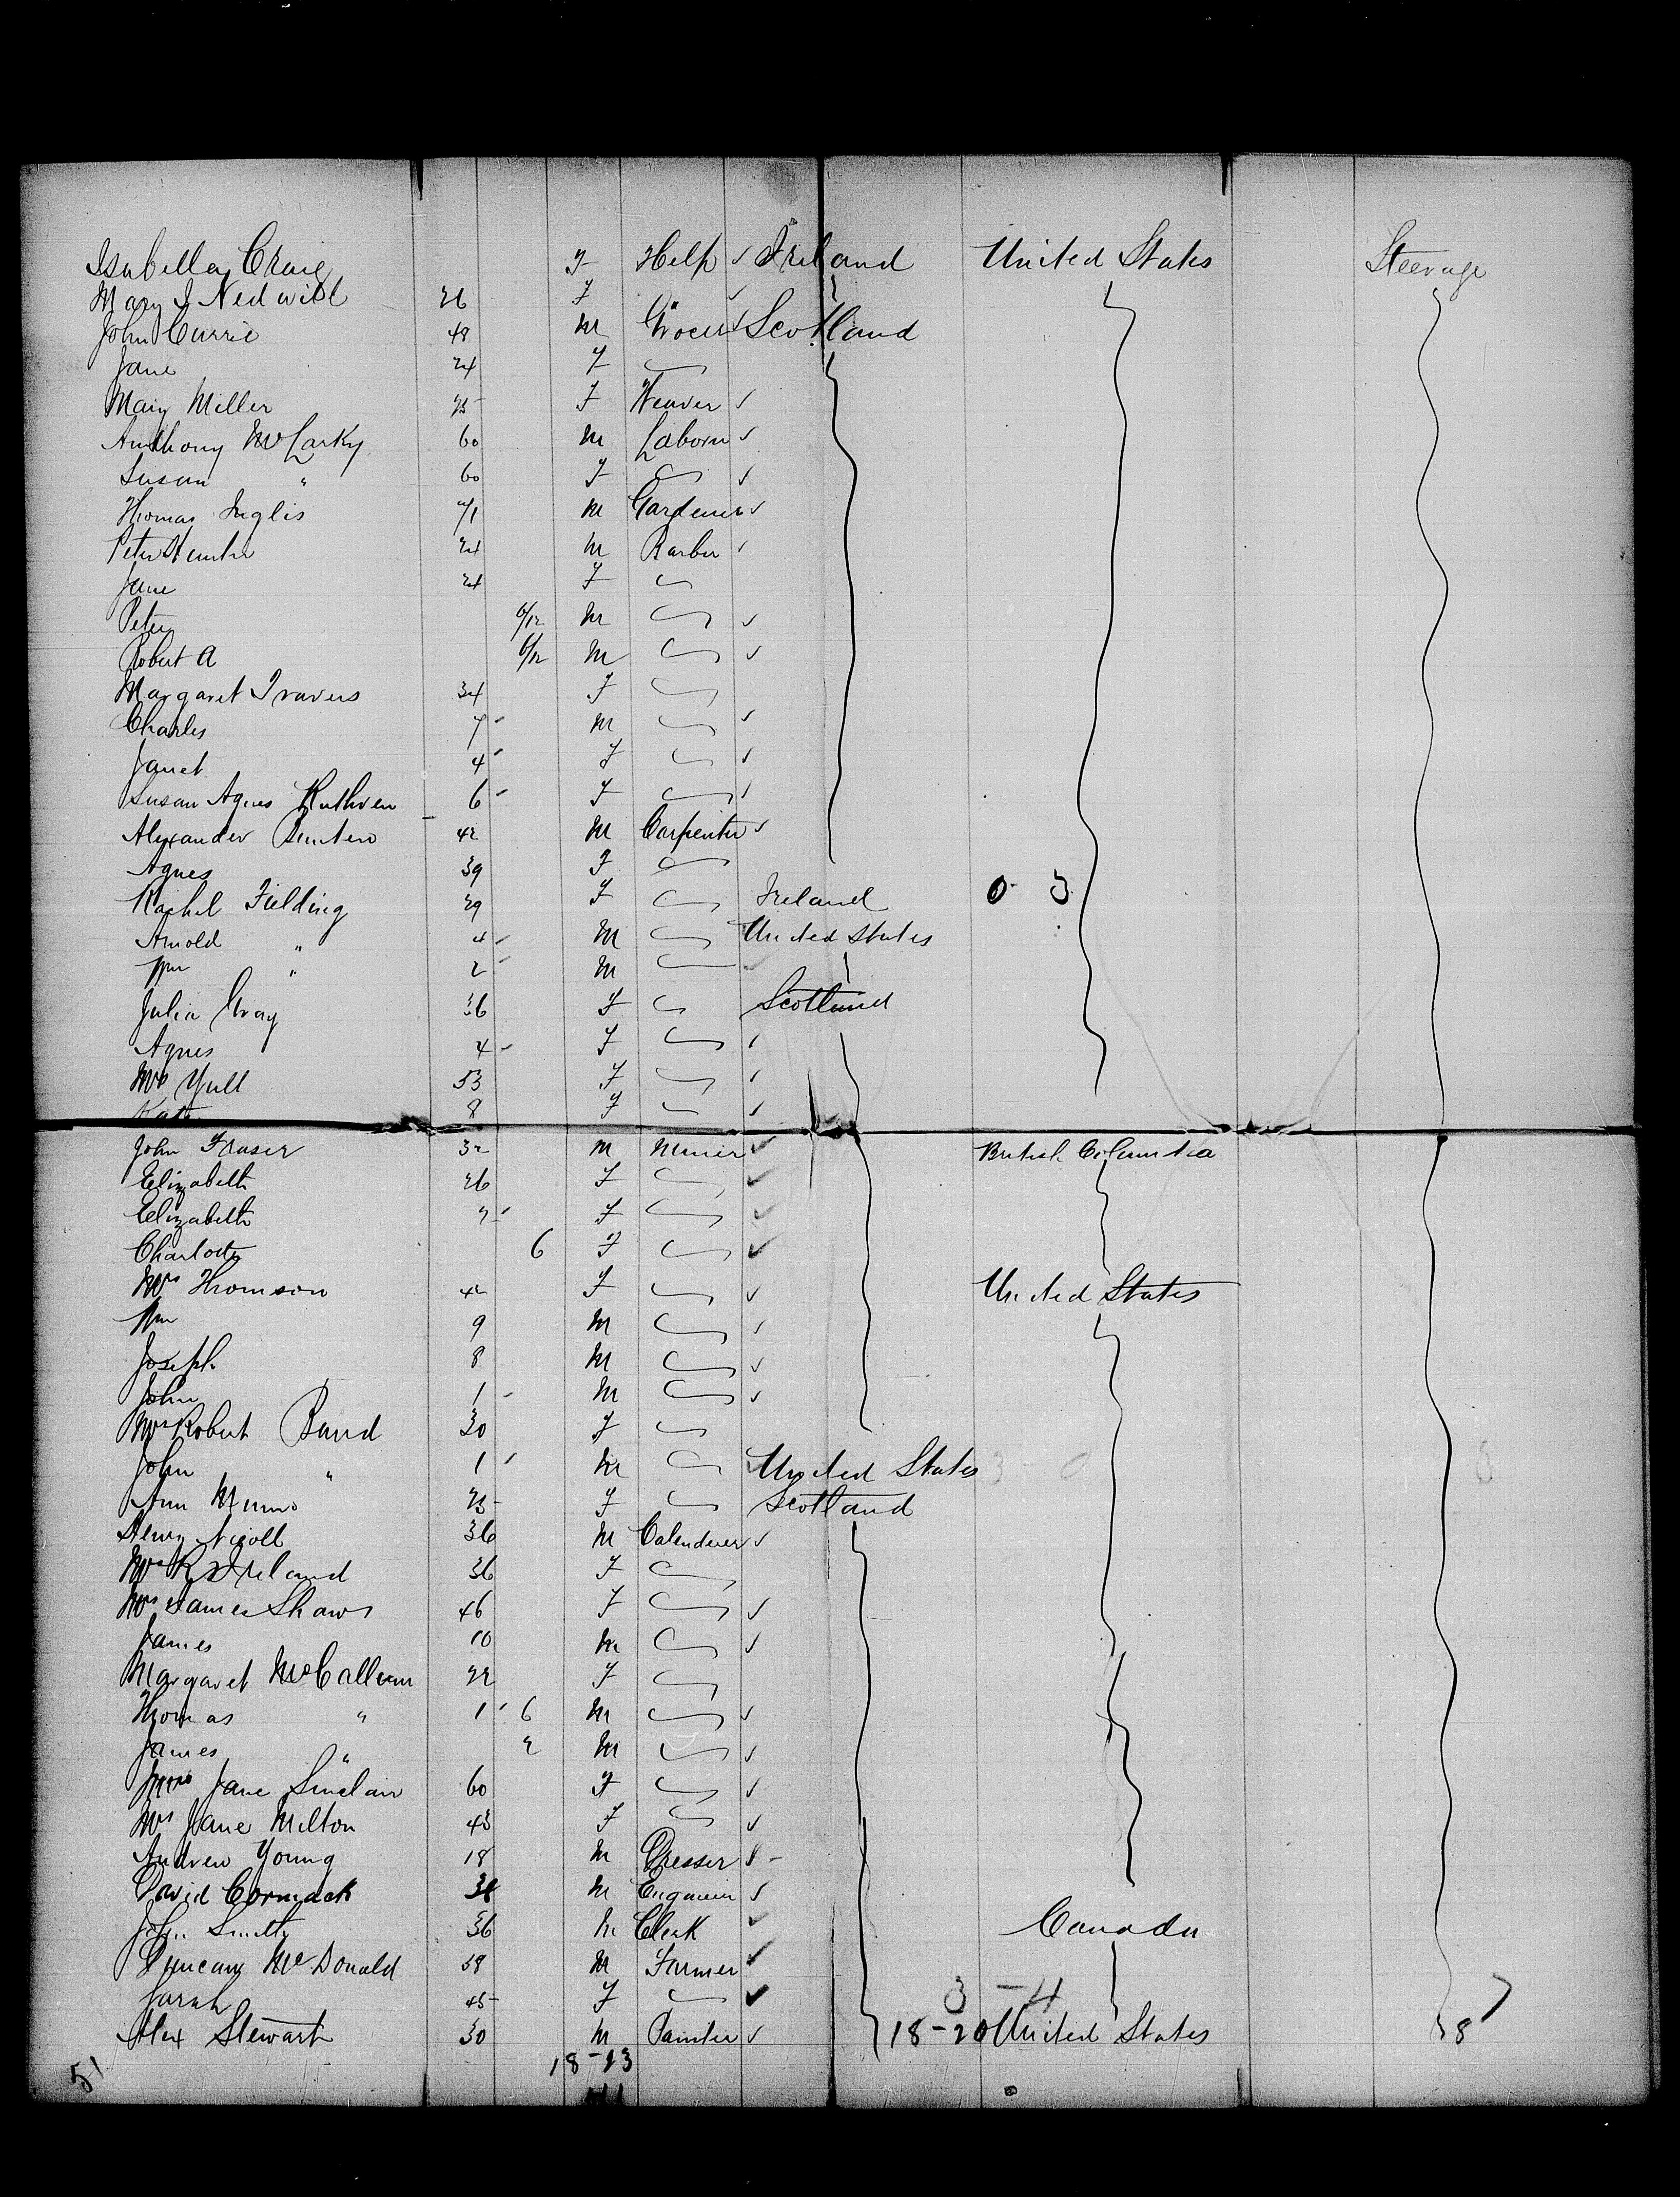 Isabella Craig F Help ✓ Ireland United States Steerage
Mary J Nedwill 26 F ✓
John Currie 48 M Grocer ✓ Scotland
Jane 24 F
Mary Miller 25 F Weaver ✓
Anthony McLarky 60 M Laborer ✓
Susan " 60 F ✓
Thomas Inglis 41 M Gardener ✓
Peter Hunter 24 M Barber ✓
Jane 24 F
Peter 6/12 M ✓
Robert A 6/12 M ✓
Margaret Travers 34 F
Charles 7 M ✓
Janet 4 F ✓
Susan Agnes Ruthven 6 F ✓
Alexander 42 M Carpenter ✓
Agnes 39 F
Rachel Fielding 29 F Ireland 0 3
Arnold " 4 M United States
Wm " 2 M
Julia Gray 36 F Scotland
Agnes 4 F ✓
Mrs Yull 53 F ✓
Kate 8 F ✓
John Fraser 32 M Miner ✓ British Columbia
Elizabeth 26 F ✓
Elizabeth F ✓
Charlotte 6 F ✓
Mrs Thomson 42 F ✓ United States
Wm 9 M ✓
Joseph 8 M ✓
John 1 M ✓
Mrs Robert Band 30 F
John " 1 M United States 3 0
Ann Munro 25 F Scotland
Henry Nicoll 36 M Calenderer ✓
Mrs R Ireland 36 F
Mrs James Shaw 46 F ✓
James 10 M ✓
Margaret McCallum 22 F
Thomas " 1 6 M ✓
James " 2 M ✓
Mrs Jane Sinclair 60 F ✓
Mrs Jane Milton 43 F ✓
Andrew Young 18 M Dresser ✓ -
David Cormack M ✓
John Smith 36 M Clerk ✓ Canada
Duncan McDonald 58 M Farmer ✓
Sarah 45 F ✓ 3 - 4 7
Alex Stewart 30 M Painter ✓ 18-20 United States 8
51 18-23